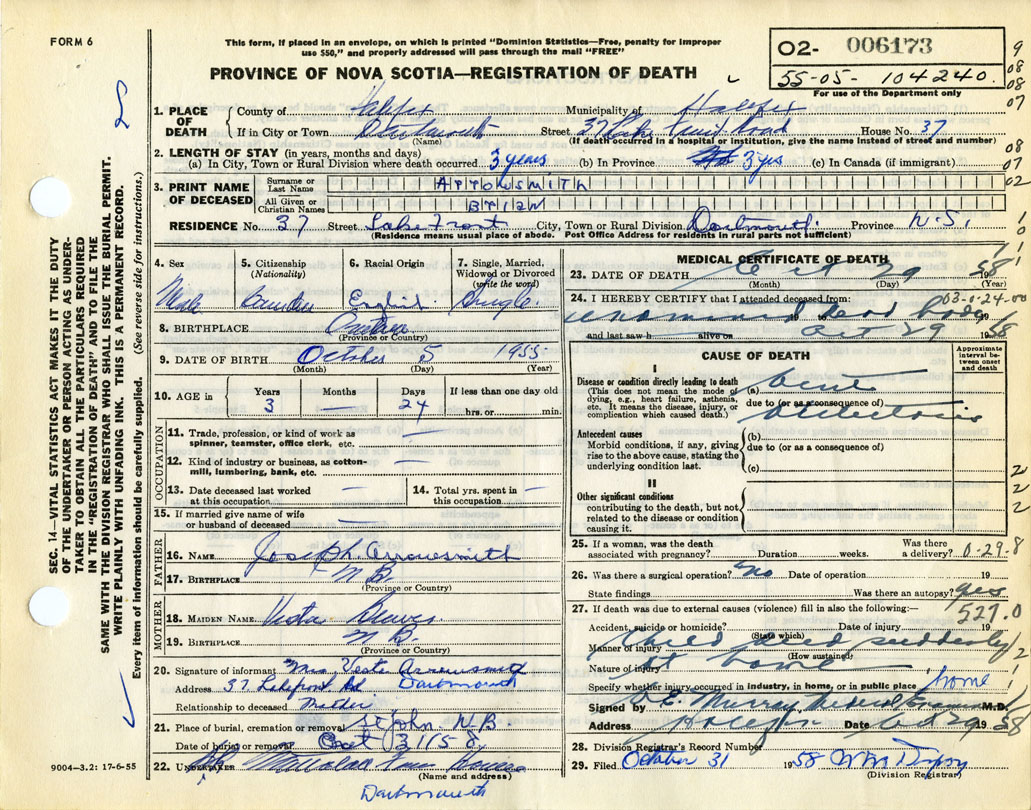 FORM 6
This form, if placed in an envelope, on which is printed "Dominion Statistics—Free, penalty for improper
use $50," and properly addressed will pass through the mail "FREE"
PROVINCE OF NOVA SCOTIA—REGISTRATION OF DEATH
02- 006173
55-05- 104240
For use of the Department only
9
08
08
07
08
07
02
SEC. 14—VITAL STATISTICS ACT MAKES IT THE DUTY
OF THE UNDERTAKER OR PERSON ACTING AS UNDER-
TAKER TO OBTAIN ALL THE PARTICULARS REQUIRED
IN THE "REGISTRATION OF DEATH" AND TO FILE THE
SAME WITH THE DIVISION REGISTRAR WHO SHALL ISSUE THE BURIAL PERMIT.
WRITE PLAINLY WITH UNFADING INK. THIS IS A PERMANENT RECORD.
Every item of information should be carefully supplied. (See reverse side for instructions.)
1. PLACE OF DEATH
County of Halifax Municipality of Halifax
If in City or Town Dartmouth Street 37 Lake Front Road House No. 37
(Name) (If death occurred in a hospital or institution, give the name instead of street and number)
2. LENGTH OF STAY (in years, months and days)
(a) In City, Town or Rural Division where death occurred 3 years (b) In Province 3 yrs (c) In Canada (if immigrant)
3. PRINT NAME OF DECEASED
Surname or Last Name ARROWSMITH
All Given or Christian Names BRIAN
RESIDENCE No. 37 Street Lake Front City, Town or Rural Division Dartmouth Province N.S.
(Residence means usual place of abode. Post Office Address for residents in rural parts not sufficient)
4. Sex Male
5. Citizenship (Nationality) Canadian
6. Racial Origin English
7. Single, Married, Widowed or Divorced (write the word) Single
8. BIRTHPLACE
(Province or Country)
9. DATE OF BIRTH October 5 1955
(Month) (Day) (Year)
10. AGE in Years 3 Months — Days 24 If less than one day old hrs. or min.
OCCUPATION
11. Trade, profession, or kind of work as spinner, teamster, office clerk, etc. —
12. Kind of industry or business, as cotton-mill, lumbering, bank, etc. —
13. Date deceased last worked at this occupation —
14. Total yrs. spent in this occupation —
15. If married give name of wife or husband of deceased —
FATHER
16. NAME Joseph Arrowsmith
17. BIRTHPLACE N B
(Province or Country)
MOTHER
18. MAIDEN NAME Vesta
19. BIRTHPLACE N B.
(Province or Country)
20. Signature of informant Mrs Vesta Arrowsmith
Address 37 Lakefront Rd. Dartmouth
Relationship to deceased Mother
21. Place of burial, cremation or removal St John N.B.
Date of burial or removal Oct 31 1958
22. UNDERTAKER
(Name and address)
Dartmouth
9004—3.2: 17-6-55
MEDICAL CERTIFICATE OF DEATH
23. DATE OF DEATH Oct 29 1958
(Month) (Day) (Year)
24. I HEREBY CERTIFY that I attended deceased from:
03-0-24-00
examined dead body
and last saw h alive on Oct 29 1958
CAUSE OF DEATH
Approximate interval between onset and death
I
Disease or condition directly leading to death
(This does not mean the mode of dying, e.g., heart failure, asthenia, etc. It means the disease, injury, or complication which caused death.)
(a)
due to (or as a consequence of)
Antecedent causes
Morbid conditions, if any, giving rise to the above cause, stating the underlying condition last.
(b)
due to (or as a consequence of)
(c)
II
Other significant conditions
contributing to the death, but not related to the disease or condition causing it.
25. If a woman, was the death associated with pregnancy? Duration weeks. Was there a delivery?
0-29-8
26. Was there a surgical operation? No Date of operation 19
State findings Was there an autopsy? yes
27. If death was due to external causes (violence) fill in also the following:— 527.0
Accident, suicide or homicide? Date of injury 19
(State which)
Manner of injury Child died suddenly
(How sustained)
Nature of injury at home
Specify whether injury occurred in industry, in home, or in public place home
Signed by E. Murray Medical Examiner M.D.
Address Halifax Date Oct 29 1958
28. Division Registrar's Record Number
29. Filed October 31 1958
(Division Registrar)